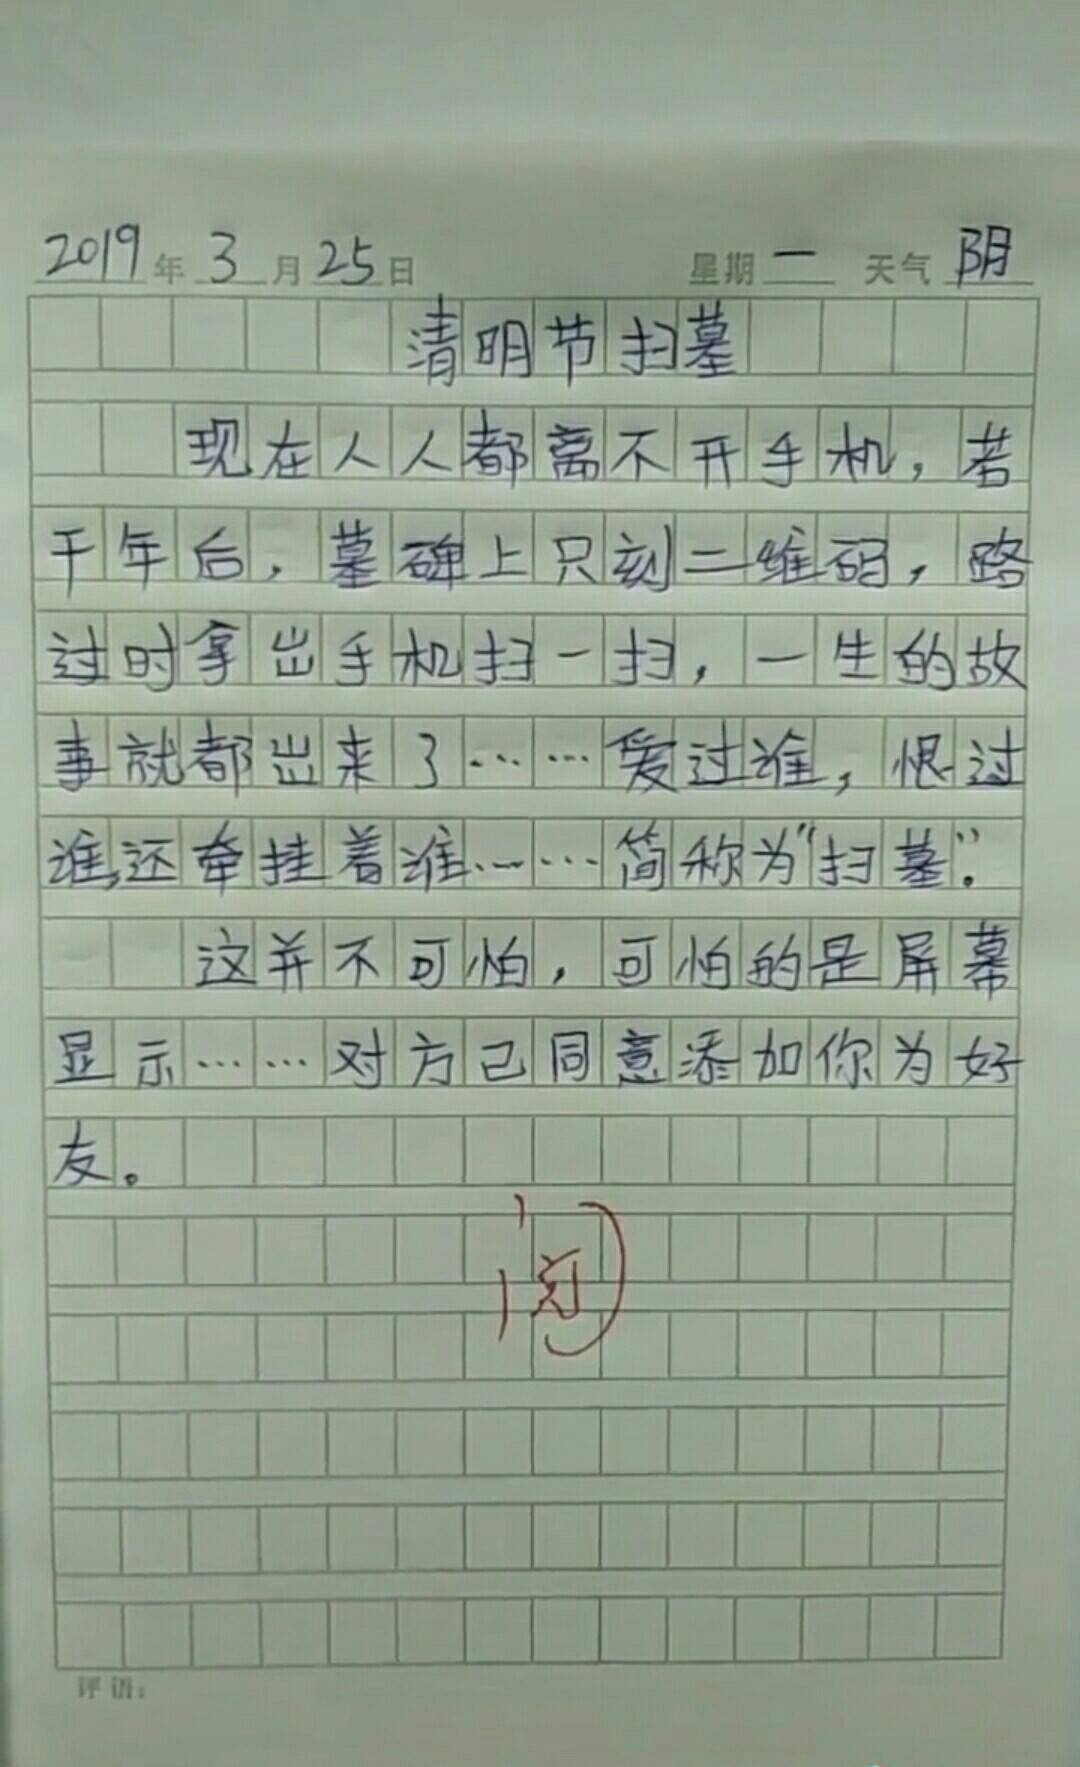 2019年3月25日 星期一 天气阴
清明节扫墓
现在人人都离不开手机，若
干年后，墓碑上只刻二维码，路
过时拿出手机扫一扫，一生的故
事就都出来了……爱过谁，恨过
谁，还牵挂着谁……简称为“扫墓”.
这并不可怕，可怕的是屏幕
显示……对方已同意添加你为好
友。
阅
评语：